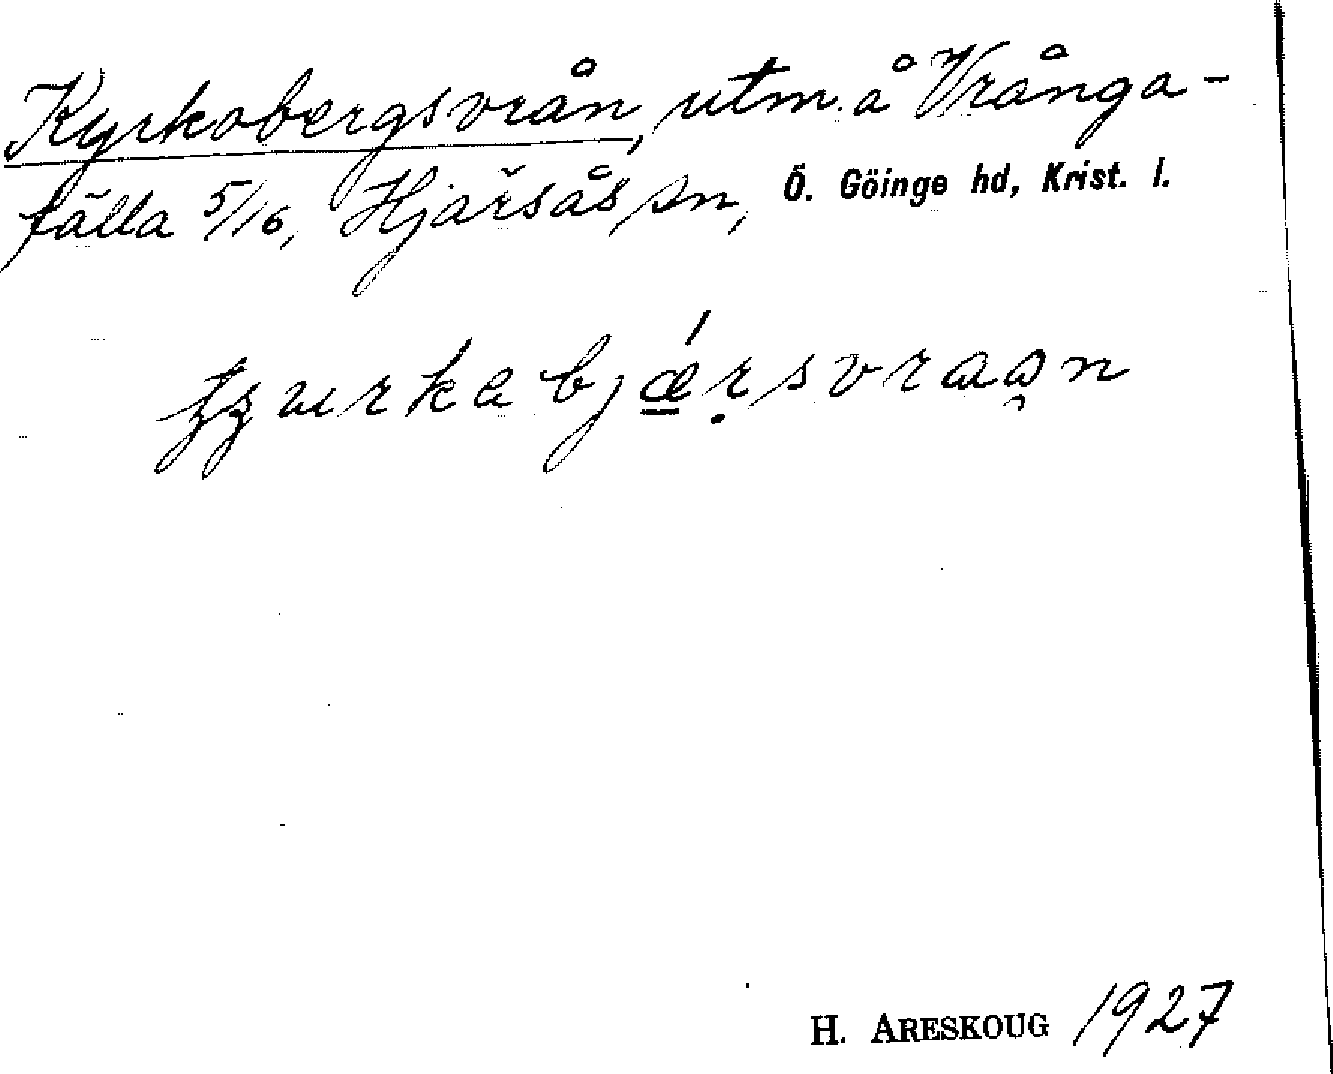 Kyrkobergsvrån, utm. å Vrånga-
fälla 5/16, Hjärsås sn, Ö. Göinge hd, Krist. l.
H. ARESKOUG 1927